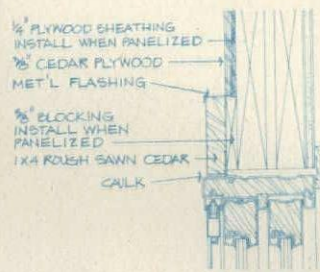 1/4" PLYWOOD SHEATHING
INSTALL WHEN PANELIZED
5/8" CEDAR PLYWOOD
MET'L FLASHING
5/8" BLOCKING
INSTALL WHEN
PANELIZED
1X4 ROUGH SAWN CEDAR
CAULK